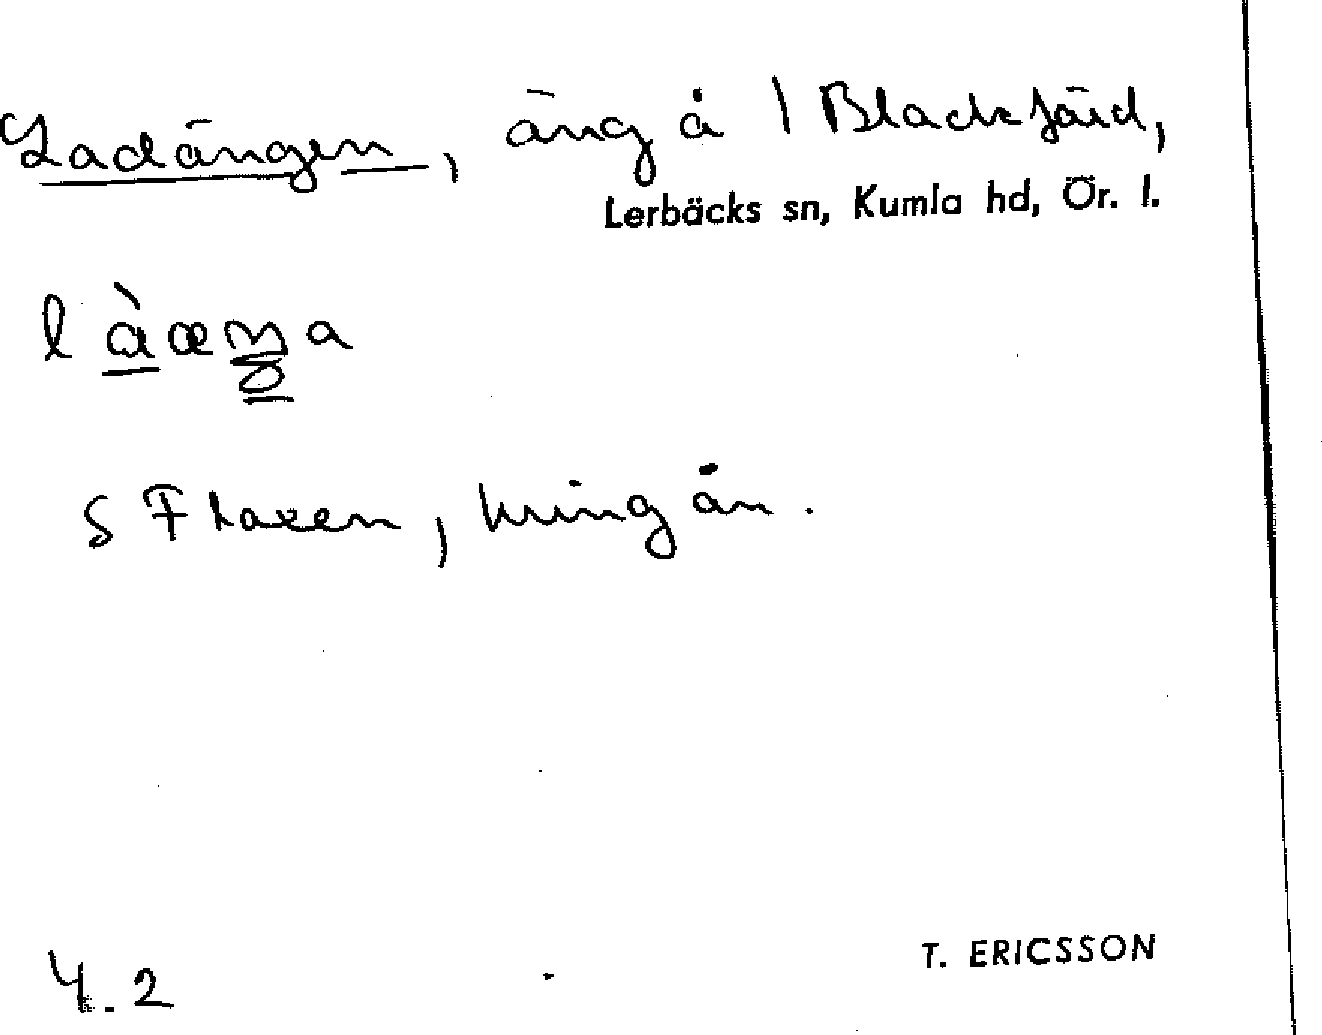 Ladängen, äng å 1 Blackfärd,
Lerbäcks sn, Kumla hd, Ör. l.
S Flaxen, kring ån.
T. ERICSSON
4.2